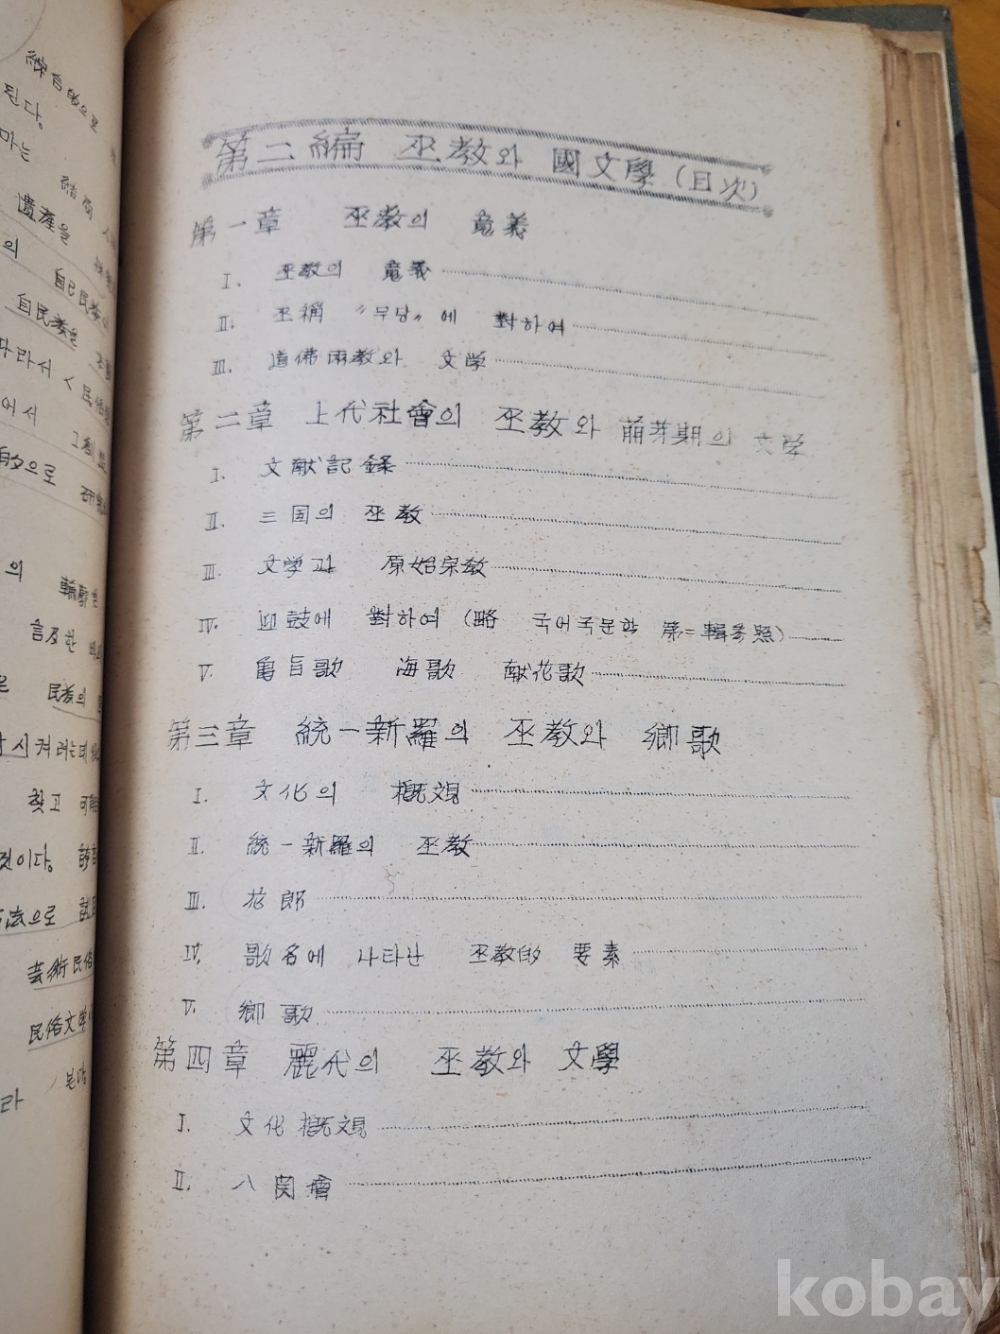 絲合的으로
된다.
마는
結局
遺産을
의 自己民族
自民族을
따라서 < 民俗
어서
的으로 研究
의 輪廓
言及한
은 民族의
시켜려는데
찾고
것이다.
으로
芸術民俗
民俗文學
라
第二編 巫教와 國文學 (目次)
第一章 巫教의 意義
I. 巫教의 意義
II. 巫稱 “무당”에 對하여
III. 道佛兩教와 文学
第二章 上代社會의 巫教와 萠芽期의 文学
I. 文献記録
II. 三国의 巫教
III. 文学과 原始宗教
IV. 迎鼓에 對하여 (略 국어국문학 第二輯参照)
V. 亀旨歌 海歌 献花歌
第三章 統一新羅의 巫教와 鄉歌
I. 文化의 概観
II. 統一新羅의 巫教
III. 花郎
IV. 歌名에 나타난 巫教的 要素
V. 鄉歌
第四章 麗代의 巫教와 文學
I. 文化概観
II. 八関會
kobay